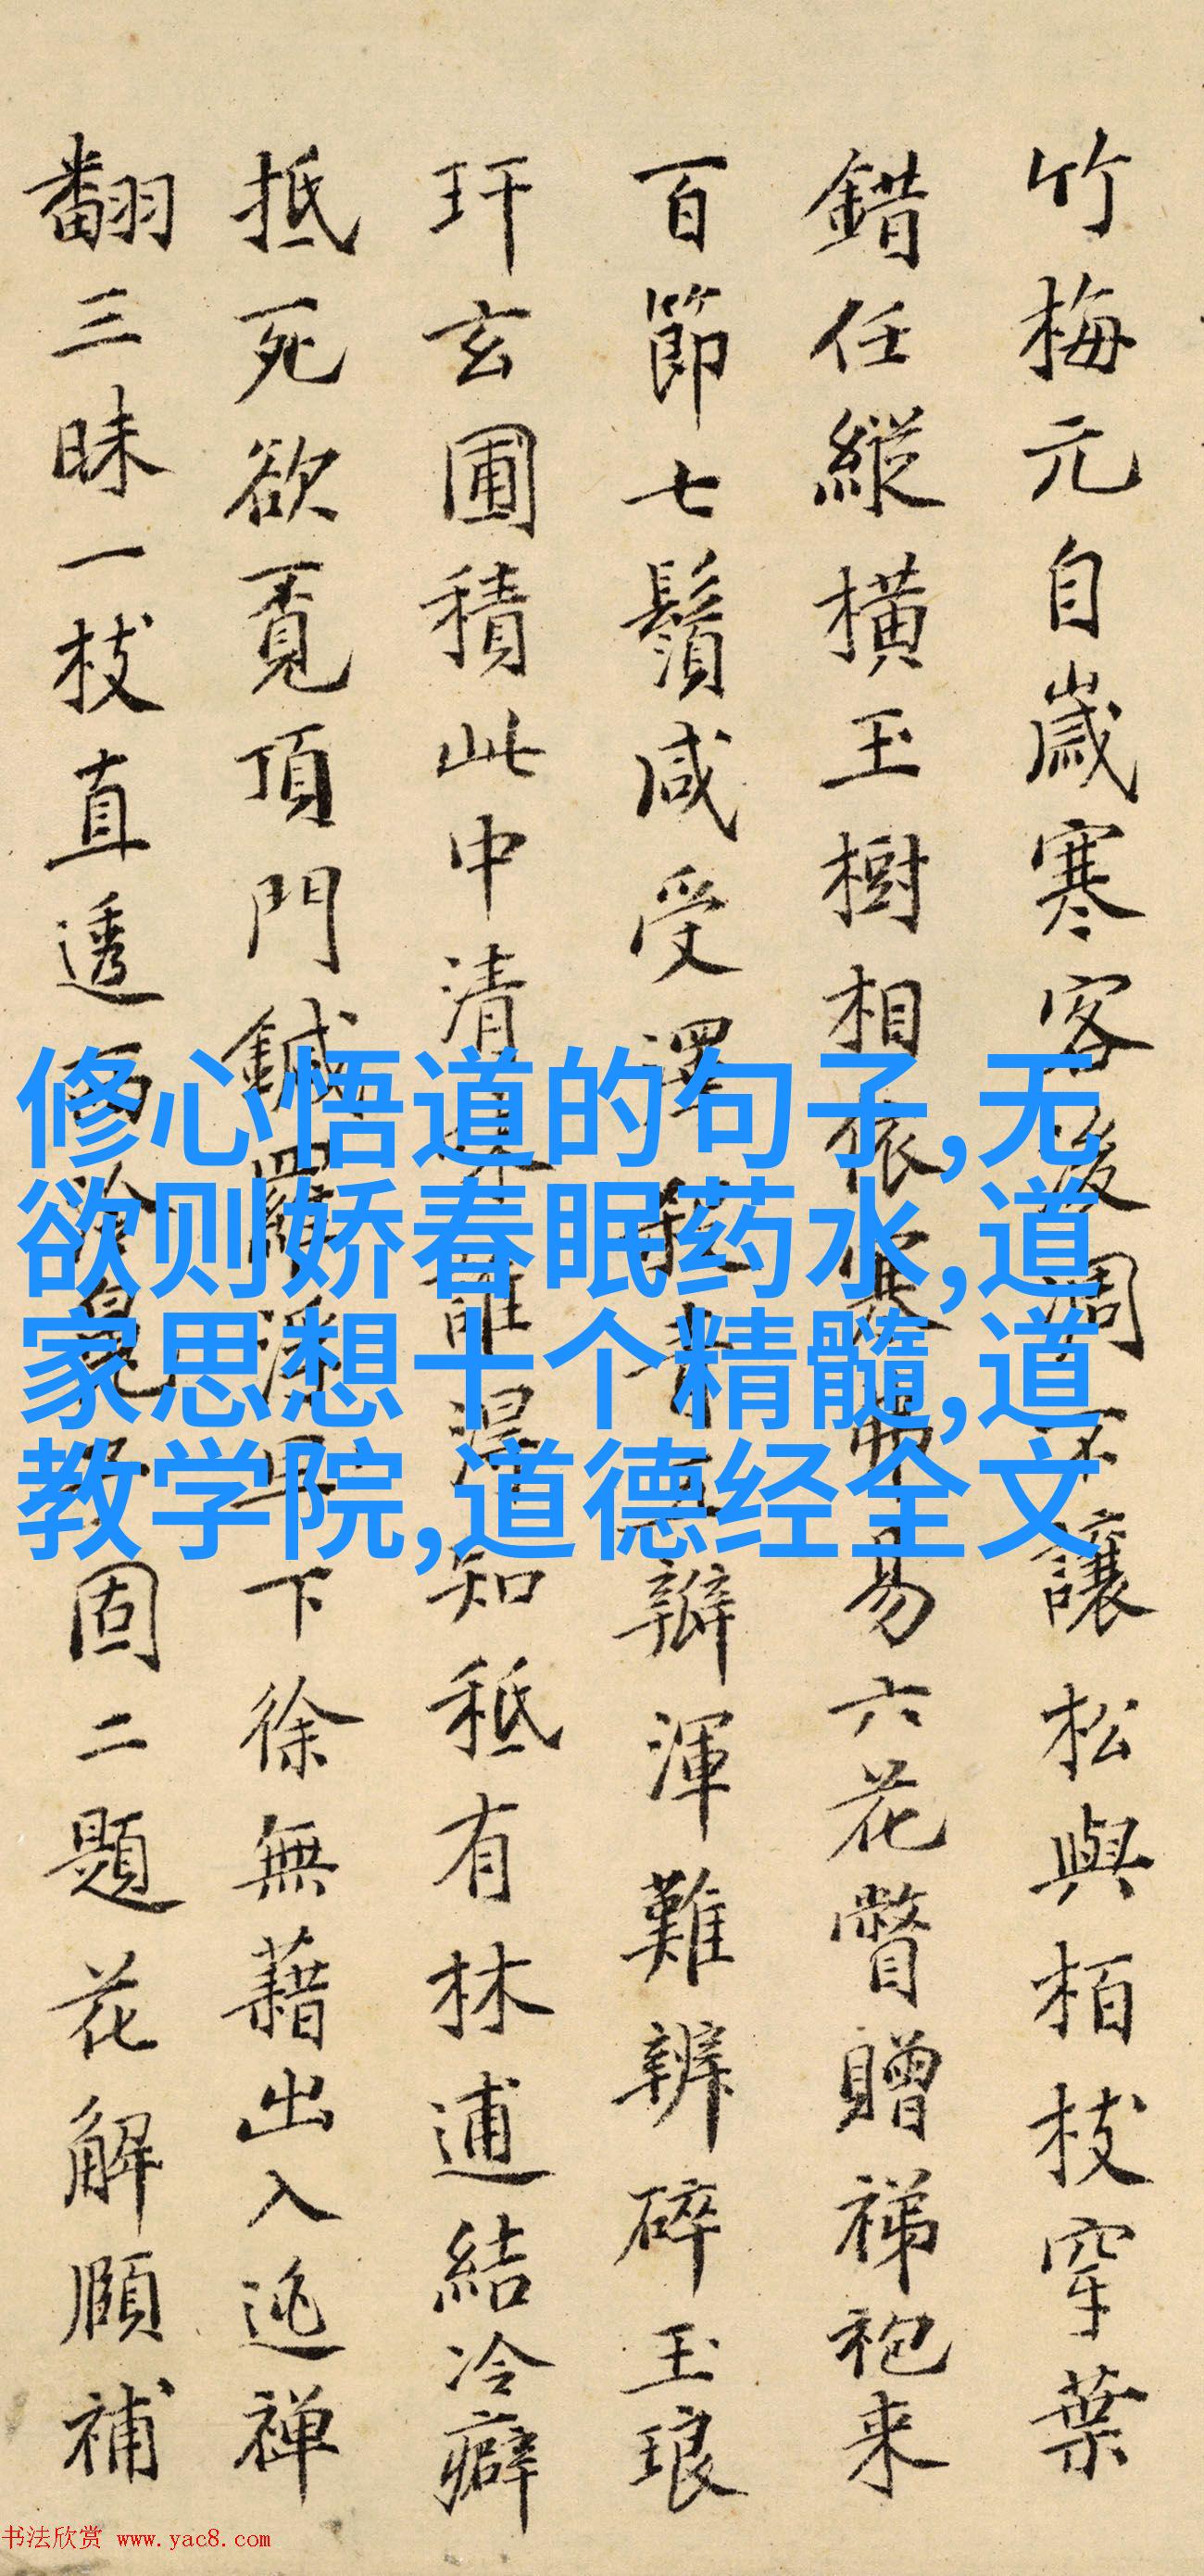 竹梅元自歲寒客後凋不讓松與栢枝穿葉
錯任縱橫玉樹相依裳易六花瞥贈裼袍来
百節七鬚咸受澤瓣渾難辨碎玉琅
玕玄圃積此中清誰知秪有林逋結冷癖
抵死欲覓頂門鍼羅下徐無藉出入逃禅
翻三昧一枝直透固二題花解頤補
修心悟道的句子,无
欲则娇春眠药水,道
家思想十个精髓,道
教学院,道德经全文
书法欣赏 www.yac8.com